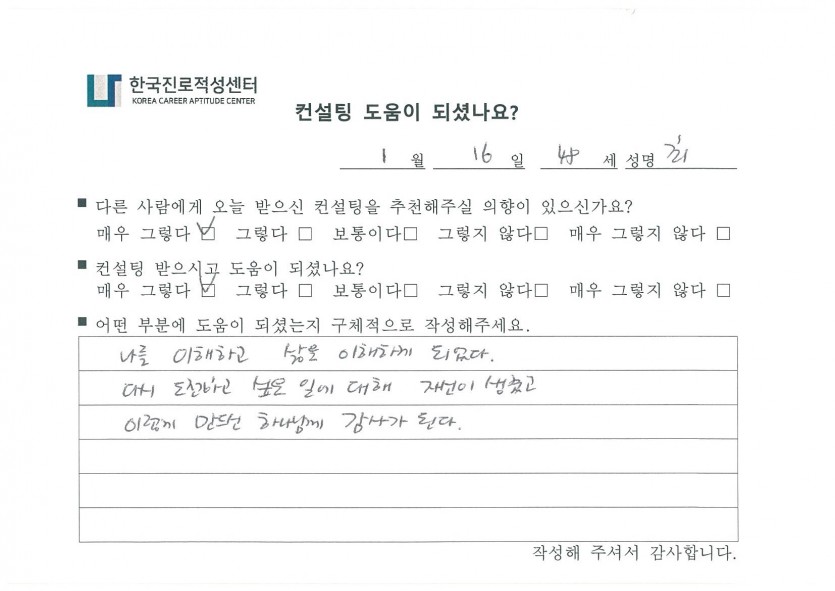 한국진로적성센터
KOREA CAREER APTITUDE CENTER
컨설팅 도움이 되셨나요?
1 월 16 일 48 세 성명 최
■ 다른 사람에게 오늘 받으신 컨설팅을 추천해주실 의향이 있으신가요?
매우 그렇다 ☑ 그렇다 □ 보통이다□ 그렇지 않다□ 매우 그렇지 않다 □
■ 컨설팅 받으시고 도움이 되셨나요?
매우 그렇다 ☑ 그렇다 □ 보통이다□ 그렇지 않다□ 매우 그렇지 않다 □
■ 어떤 부분에 도움이 되셨는지 구체적으로 작성해주세요.
나를 이해하고 삶을 이해하게 되었다.
다시 도전하고 싶은 일에 대해 생겼고
이렇게 만드신 하나님께 감사가 된다.
작성해 주셔서 감사합니다.